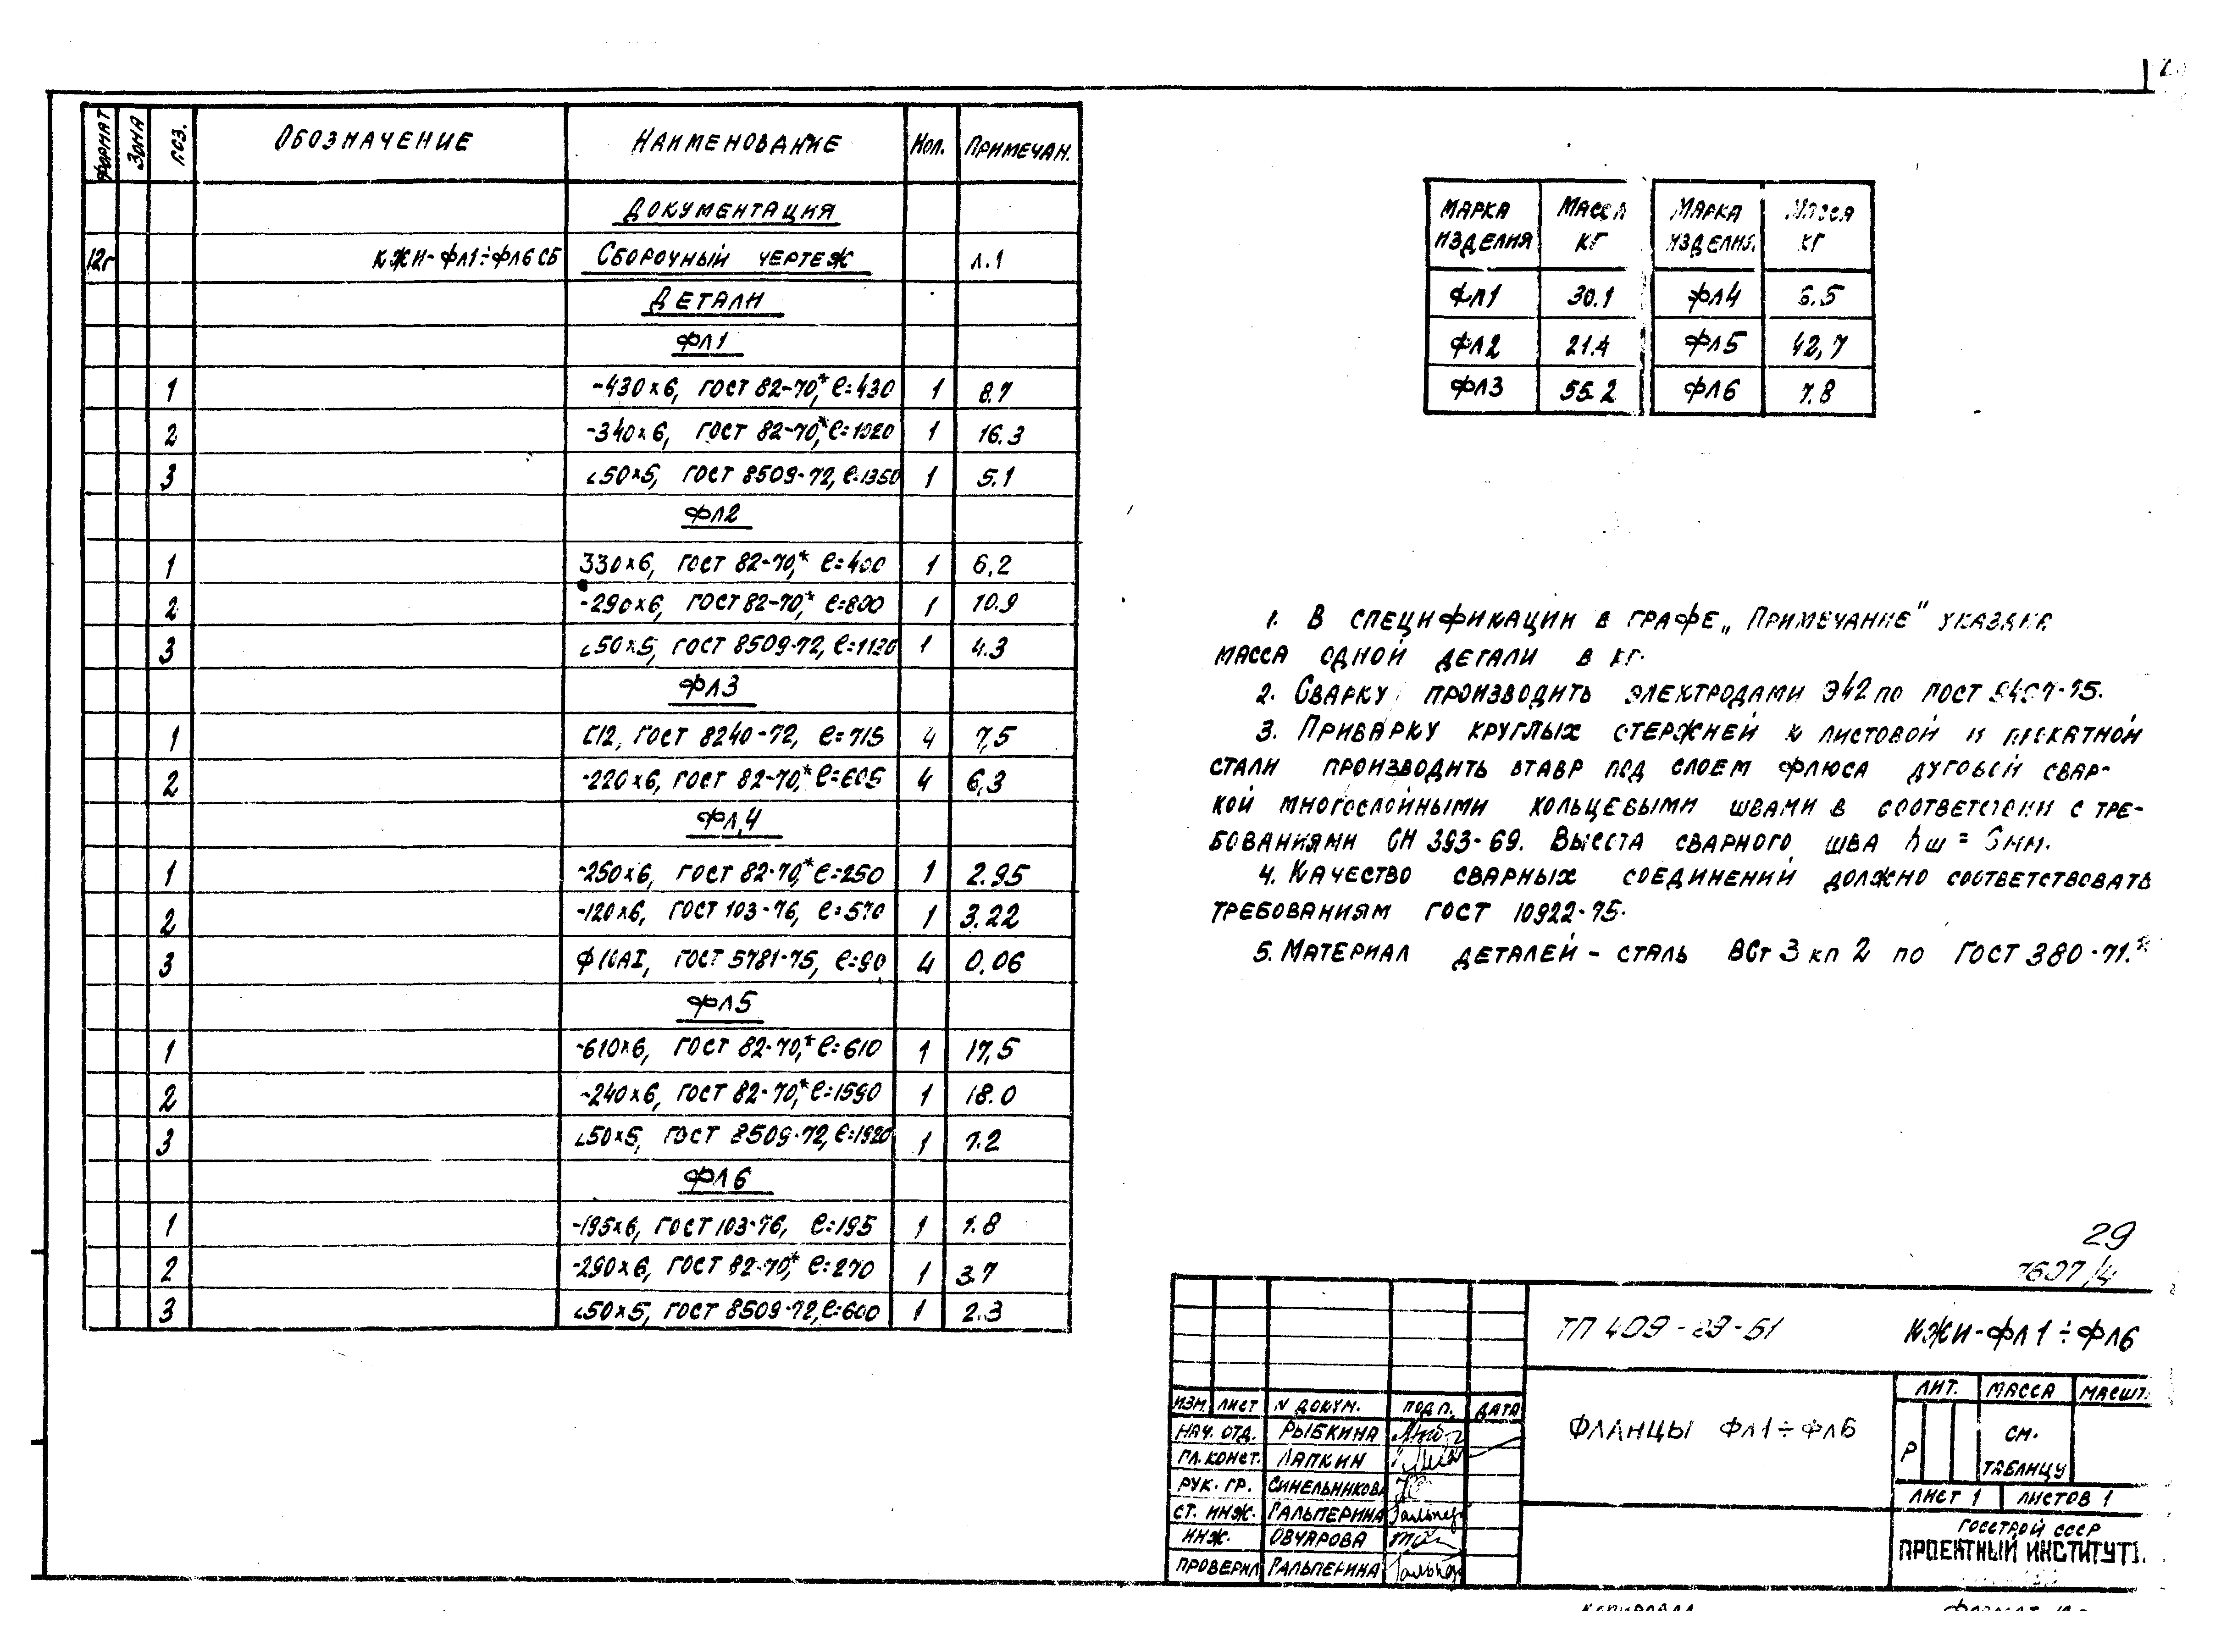 ФОРМАТ ЗОНА ПОЗ. ОБОЗНАЧЕНИЕ НАИМЕНОВАНИЕ КОЛ. ПРИМЕЧАН.
ДОКУМЕНТАЦИЯ
12г КЖИ-ФЛ1÷ФЛ6 СБ СБОРОЧНЫЙ ЧЕРТЕЖ л.1
ДЕТАЛИ
ФЛ1
1 -430×6, ГОСТ 82-70,* ℓ=430 1 8.7
2 -340×6, ГОСТ 82-70,* ℓ=1020 1 16.3
3 ∟50×5, ГОСТ 8509-72, ℓ=1350 1 5.1
ФЛ2
1 330×6, ГОСТ 82-70,* ℓ=400 1 6.2
2 -290×6, ГОСТ 82-70,* ℓ=800 1 10.9
3 ∟50×5, ГОСТ 8509-72, ℓ=1130 1 4.3
ФЛ3
1 С12, ГОСТ 8240-72, ℓ=715 4 7,5
2 -220×6, ГОСТ 82-70,* ℓ=605 4 6,3
ФЛ4
1 -250×6, ГОСТ 82-70,* ℓ=250 1 2.95
2 -120×6, ГОСТ 103-76, ℓ=570 1 3.22
3 ГОСТ 5781-75, ℓ=90 4 0.06
ФЛ5
1 -610×6, ГОСТ 82-70,* ℓ=610 1 17,5
2 -240×6, ГОСТ 82-70,* ℓ=1590 1 18.0
3 ∟50×5, ГОСТ 8509-72, ℓ=1920 1 7.2
ФЛ6
1 -195×6, ГОСТ 103-76, ℓ=195 1 1.8
2 -290×6, ГОСТ 82-70,* ℓ=270 1 3.7
3 ∟50×5, ГОСТ 8509-72, ℓ=600 1 2.3
МАРКА МАССА МАРКА МАССА
ИЗДЕЛИЯ КГ ИЗДЕЛИЯ. КГ
ФЛ1 30.1 ФЛ4 6.5
ФЛ2 21.4 ФЛ5 42,7
ФЛ3 55.2 ФЛ6 7.8
1. В СПЕЦИФИКАЦИИ В ГРАФЕ „ПРИМЕЧАНИЕ" УКАЗАНА
МАССА ОДНОЙ ДЕТАЛИ В КГ.
2. СВАРКУ ПРОИЗВОДИТЬ ЭЛЕКТРОДАМИ Э42 ПО ГОСТ 9467-75.
3. ПРИВАРКУ КРУГЛЫХ СТЕРЖНЕЙ К ЛИСТОВОЙ И ПРОКАТНОЙ
СТАЛИ ПРОИЗВОДИТЬ ВТАВР ПОД СЛОЕМ ФЛЮСА ДУГОВОЙ СВАР-
КОЙ МНОГОСЛОЙНЫМИ КОЛЬЦЕВЫМИ ШВАМИ В СООТВЕТСТВИИ С ТРЕ-
БОВАНИЯМИ СН 393-69. ВЫСОТА СВАРНОГО ШВА hш = 6 ММ.
4. КАЧЕСТВО СВАРНЫХ СОЕДИНЕНИЙ ДОЛЖНО СООТВЕТСТВОВАТЬ
ТРЕБОВАНИЯМ ГОСТ 10922-75.
5. МАТЕРИАЛ ДЕТАЛЕЙ - СТАЛЬ ВСт 3 кп 2 ПО ГОСТ 380-71.*
29
7607/4
ТП 409-29-61 КЖИ-ФЛ1÷ФЛ6
ИЗМ. ЛИСТ N ДОКУМ. ПОДП. ДАТА
НАЧ. ОТД. РЫБКИНА
ГЛ. КОНСТ. ЛАПКИН
РУК. ГР. СИНЕЛЬНИКОВА
СТ. ИНЖ. ГАЛЬПЕРИНА
ИНЖ. ОВЧАРОВА
ПРОВЕРИЛ ГАЛЬПЕРИНА
ФЛАНЦЫ ФЛ1÷ФЛ6
ЛИТ. МАССА МАСШТ.
Р СМ.
ТАБЛИЦУ
ЛИСТ 1 ЛИСТОВ 1
ГОССТРОЙ СССР
ПРОЕКТНЫЙ ИНСТИТУТ
КОПИРОВАЛ ФОРМАТ